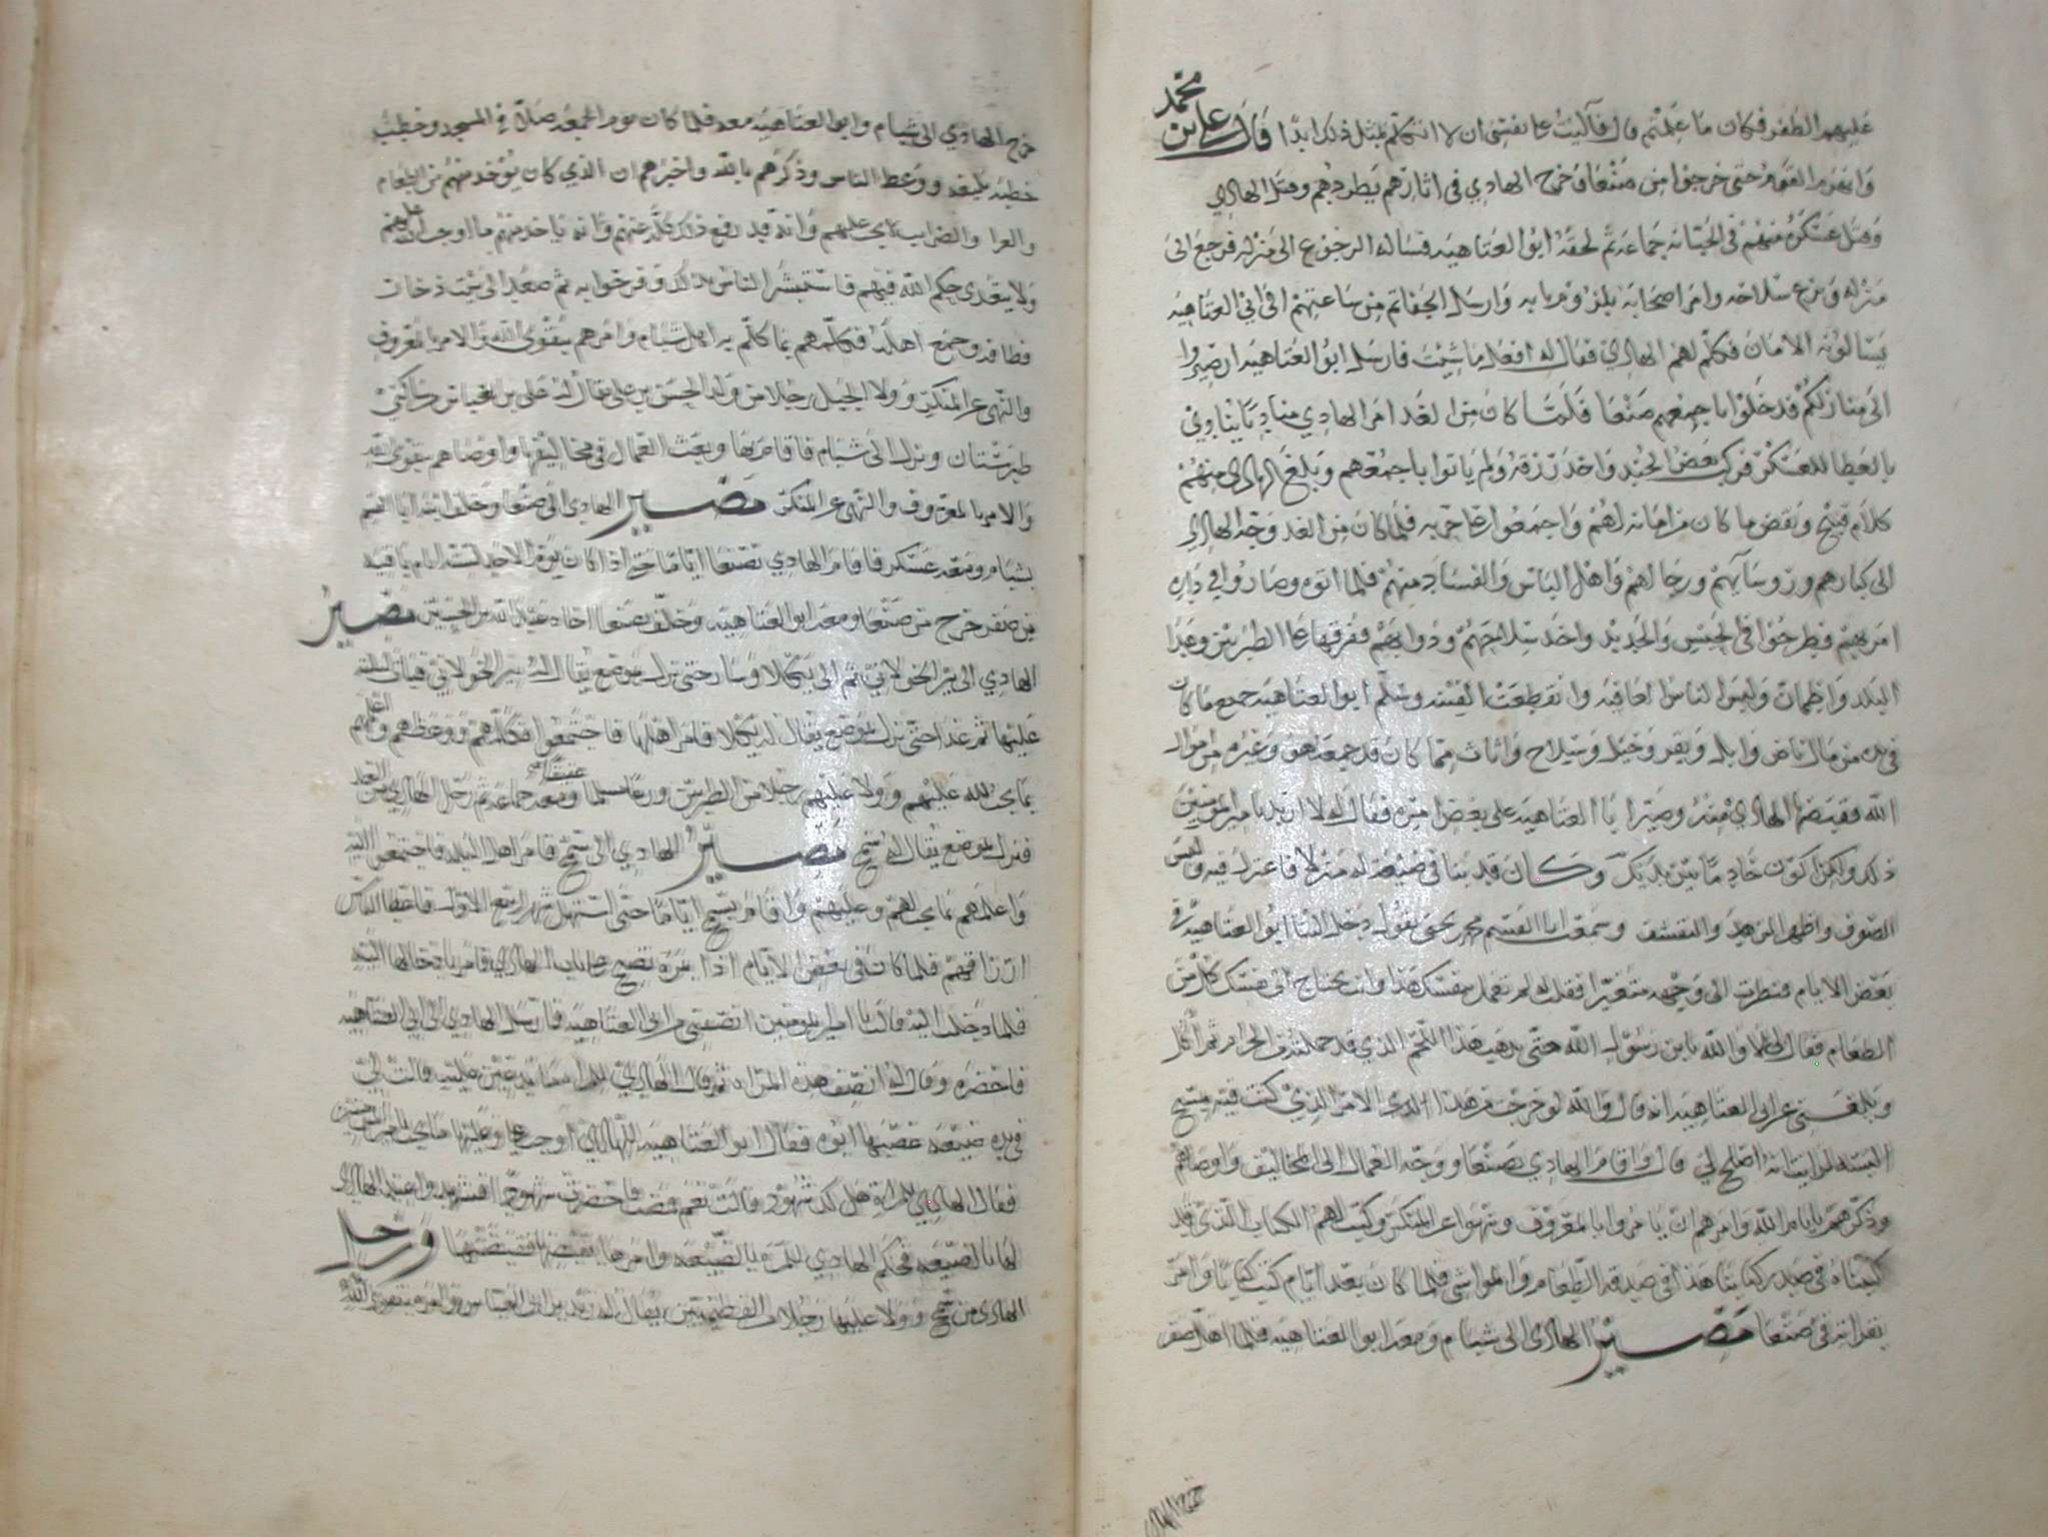 عليهم الظفر فكان ما علمتم قال فآليت على نفسي ان لا اتكلم بمثل ذلك ابدا قال علي بن محمد
وانهزم القوم حتى خرجوا من صنعا وخرج الهادي في اثارهم يطردهم وقتل الهادي
وقتل عسكره منهم في الجبانه جماعه ثم لحقه ابوا العتاهيه فساله الرجوع الى منزله فرجع الى
منزله ونزع سلاحه وامر اصحابه وارسل من ساعتهم الى ابي العتاهيه
يسالونه الامان فكلم لهم الهادي فقال له افعل ما شيت فارسل ابوا العتاهيه ان صيروا
الى منازلكم فدخلوا باجمعهم صنعا فلما كان من الغد امر الهادي مناديا ينادي
بالعطا للعسكر فركب بعض الجند واخذ رزقه ولم ياتوا باجمعهم وبلغ الهادي منهم
كلام قبيح ونقض ما كان من امانه لهم واجمعوا على حربه فلما كان من الغد وجه الهادي
الى كبارهم وروسآيهم ورجالهم واهل الباس والفساد منهم فلما اتوه وصاروا في داره
امر بهم فطرحوا في الحبس والحديد واخذ سلاحهم ودوابهم ففرقها على الطبريين وهدا
البلد واطمان ولبس الناس العافيه وانقطعت الفتنه وسلم ابوا العتاهيه جميع ما كان
في يده من مال ناض وابل وبقر وخيل وسلاح واثاث مما كان قد جمعه هو وغيره من اموال
الله فقبضها الهادي منه وصير ابا العتاهيه على بعض امره فقال له لا اريد يا امير المومنين
ذلك ولكن اكون خادما بين يديك وكان قد بنا في ضيعة له منزلا فاعتزل فيه ولبس
الصوف واظهر الزهد والتقشف وسمعت ابا القسم محمد بن يحيى يقول دخل الينا ابوا العتاهيه في
بعض الايام فنظرت الى وجهه متغيرا فقلت له لم تفعل بنفسك هذا وانت تحتاج الى نفسك كل من
الطعام فقال لي لا والله يا بن رسول الله حتى يذهب هذا اللحم الذي قد حملته من الحرام ثم آكل
وبلغني عن ابي العتاهيه انه قال والله لو خرجت من هذا الامر الذي كنت فيه
البسه لرايت انه اصلح لي قال واقام الهادي بصنعا ووجه العمال الى المخاليف واوصاهم
وذكرهم بايام الله وامرهم ان يامروا بالمعروف وينهوا عن المنكر وكتب لهم الكتاب الذي قد
كتبناه في صدر كتابنا هذا في صدقة الطعام والمواشي فلما كان بعد ايام كتب كتابا وامر
بقراته في صنعا مصير الهادي الى شبام ومعه ابوا العتاهيه فلما اهل صفر
خرج الهادي الى شبام وابوا العتاهيه معه فلما كان يوم الجمعه صلى في المسجد وخطب
خطبة بليغه ووعظ الناس وذكرهم بالله واخبرهم ان الذي كان يوخذ منهم من الطعام
والضرايب لا يجب عليهم وانه قد رفع ذلك كله عنهم وانه ياخذ منهم ما اوجب الله عليهم
ولا يتعدى حكم الله فيهم فاستبشر الناس بذلك وفرحوا به ثم صعد الى بيت ذخار
فطافه وجمع اهله فكلمهم بما كلم به اهل شبام وامرهم بتقوى الله والامر بالمعروف
والنهي عن المنكر وولا الجبل رجلا من ولد الحسن بن علي يقال له علي بن العباس
طبرستان ونزل الى شبام فاقام بها وبعث العمال في مخاليفها واوصاهم بتقوى الله
والامر بالمعروف والنهي عن المنكر مصير الهادي الى صنعا وخلف ابنه ابا القسم
بشبام ومعه عسكر فاقام الهادي بصنعا اياما حتى اذا كان يوم الاحد لسته ايام باقيه
من صفر خرج من صنعا ومعه ابوا العتاهيه وخلف بصنعا اخاه عبد الله بن الحسين مصير
الهادي الى بير الخولاني ثم الى يكلا وسار حتى نزل بموضع يقال له بير الخولاني فبات ليلته
عليها ثم غدا حتى نزل بموضع يقال له يكلا فامر اهلها فاجتمعوا فكلمهم ووعظهم واعلمهم
بما يجب لله عليهم وولا عليهم رجلا من الطبريين ومعه جماعه ثم رحل الهادي من الغد
فنزل بموضع يقال له سح مصير الهادي الى سح فامر اهل البلد فاجتمعوا اليه
واعلمهم بما يجب لهم وعليهم واقام بسح اياما حتى استهل شهر ربيع الاول فاعطا الناس
ارزاقهم فلما كان في بعض الايام اذا بمره تصيح على باب الهادي فامر بادخالها اليه
فلما دخلت اليه قالت يا امير المومنين انصفني من ابي العتاهيه فارسل الهادي الى ابي العتاهيه
فاحضره وقال له انصف هذه المراه ثم قال الهادي للمراه ما تدعين عليه قالت لي
في يده ضيعه غصبنيها ابوه فقال ابوا العتاهيه للهادي اوجب علي وعليها ما يجب
فقال الهادي للمراة هل لك شهود قالت نعم فمضت فاحضرت شهودا فشهدوا عند الهادي
لها بالضيعه فحكم الهادي للمره بالضيعه وامرها بقبضها فقبضتها ورحل
الهادي من سح وولا عليها رجلا من الفطيميين يقال له زيد بن ابي العباس وامره بتقوى الله